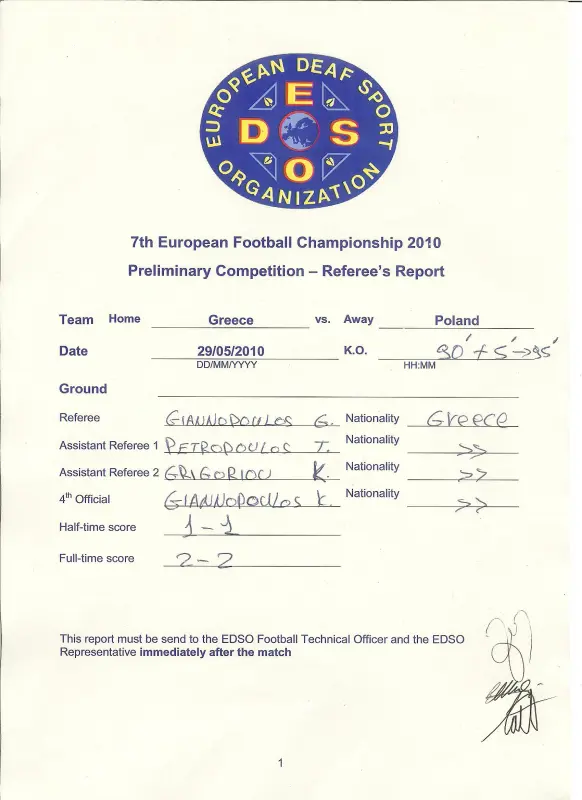 EUROPEAN DEAF SPORT
E
D S
O
ORGANIZATION
7th European Football Championship 2010
Preliminary Competition – Referee's Report
Team Home Greece vs. Away Poland
Date 29/05/2010 K.O. 90' + 5' → 95'
DD/MM/YYYY HH:MM
Ground
Referee GIANNOPOULOS G. Nationality Greece
Assistant Referee 1 PETROPOULOS T. Nationality >>
Assistant Referee 2 GRIGORIOU K. Nationality >>
4th Official GIANNOPOULOS K. Nationality >>
Half-time score 1 – 1
Full-time score 2 – 2
This report must be send to the EDSO Football Technical Officer and the EDSO
Representative immediately after the match
1